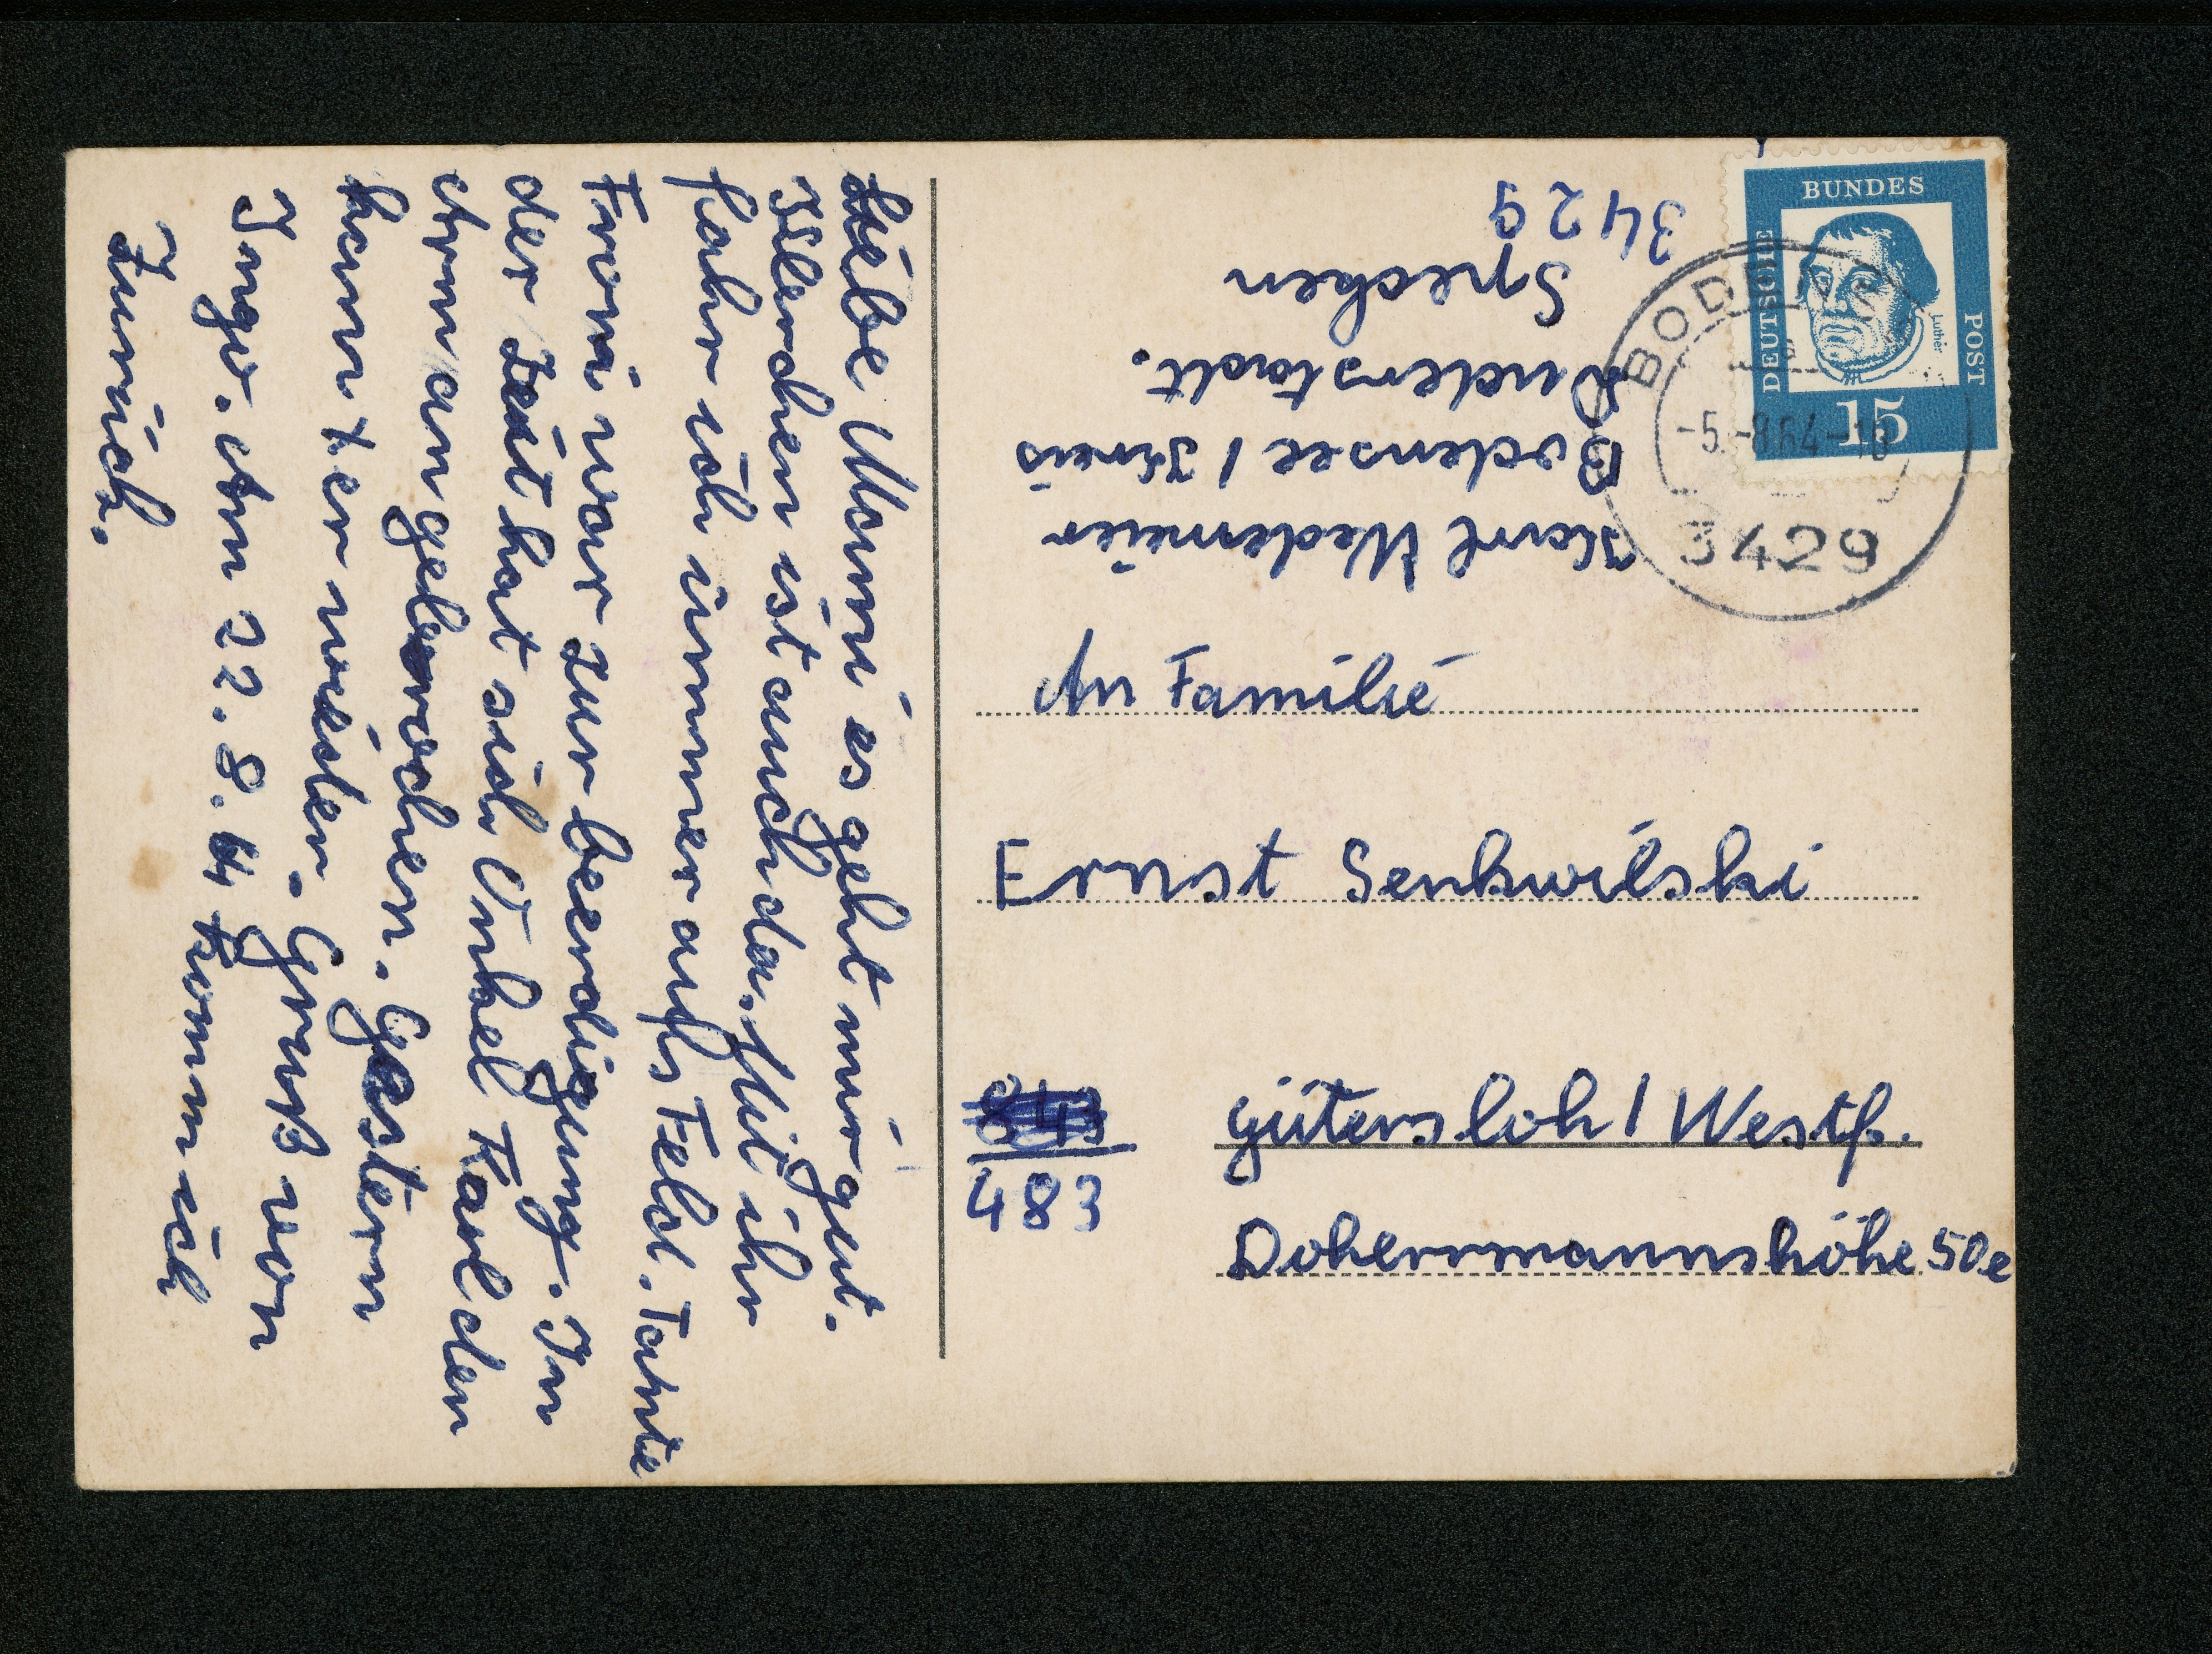 Liebe Mami es geht mir gut.
Klärchen ist auch da. Mit ihr
fahr ich immer aufs Feld. Tante
Froni war zur beerdigung. In
der Zeit hat sich Onkel Karl den
Arm angebrochen. Gestern
kam er wieder. Gruß von
Ingo. Am 22.8.64 komm ich
Zurück.
3429
Karl Wedemeier
Bodensee / Kreis
Duderstadt.
BUNDES
DEUTSCHE
POST
Luther
15
-5.-8.64-18
3429
An Familie
Ernst Senkwilski
483
Gütersloh / Westf.
Dohermannshöhe 50e